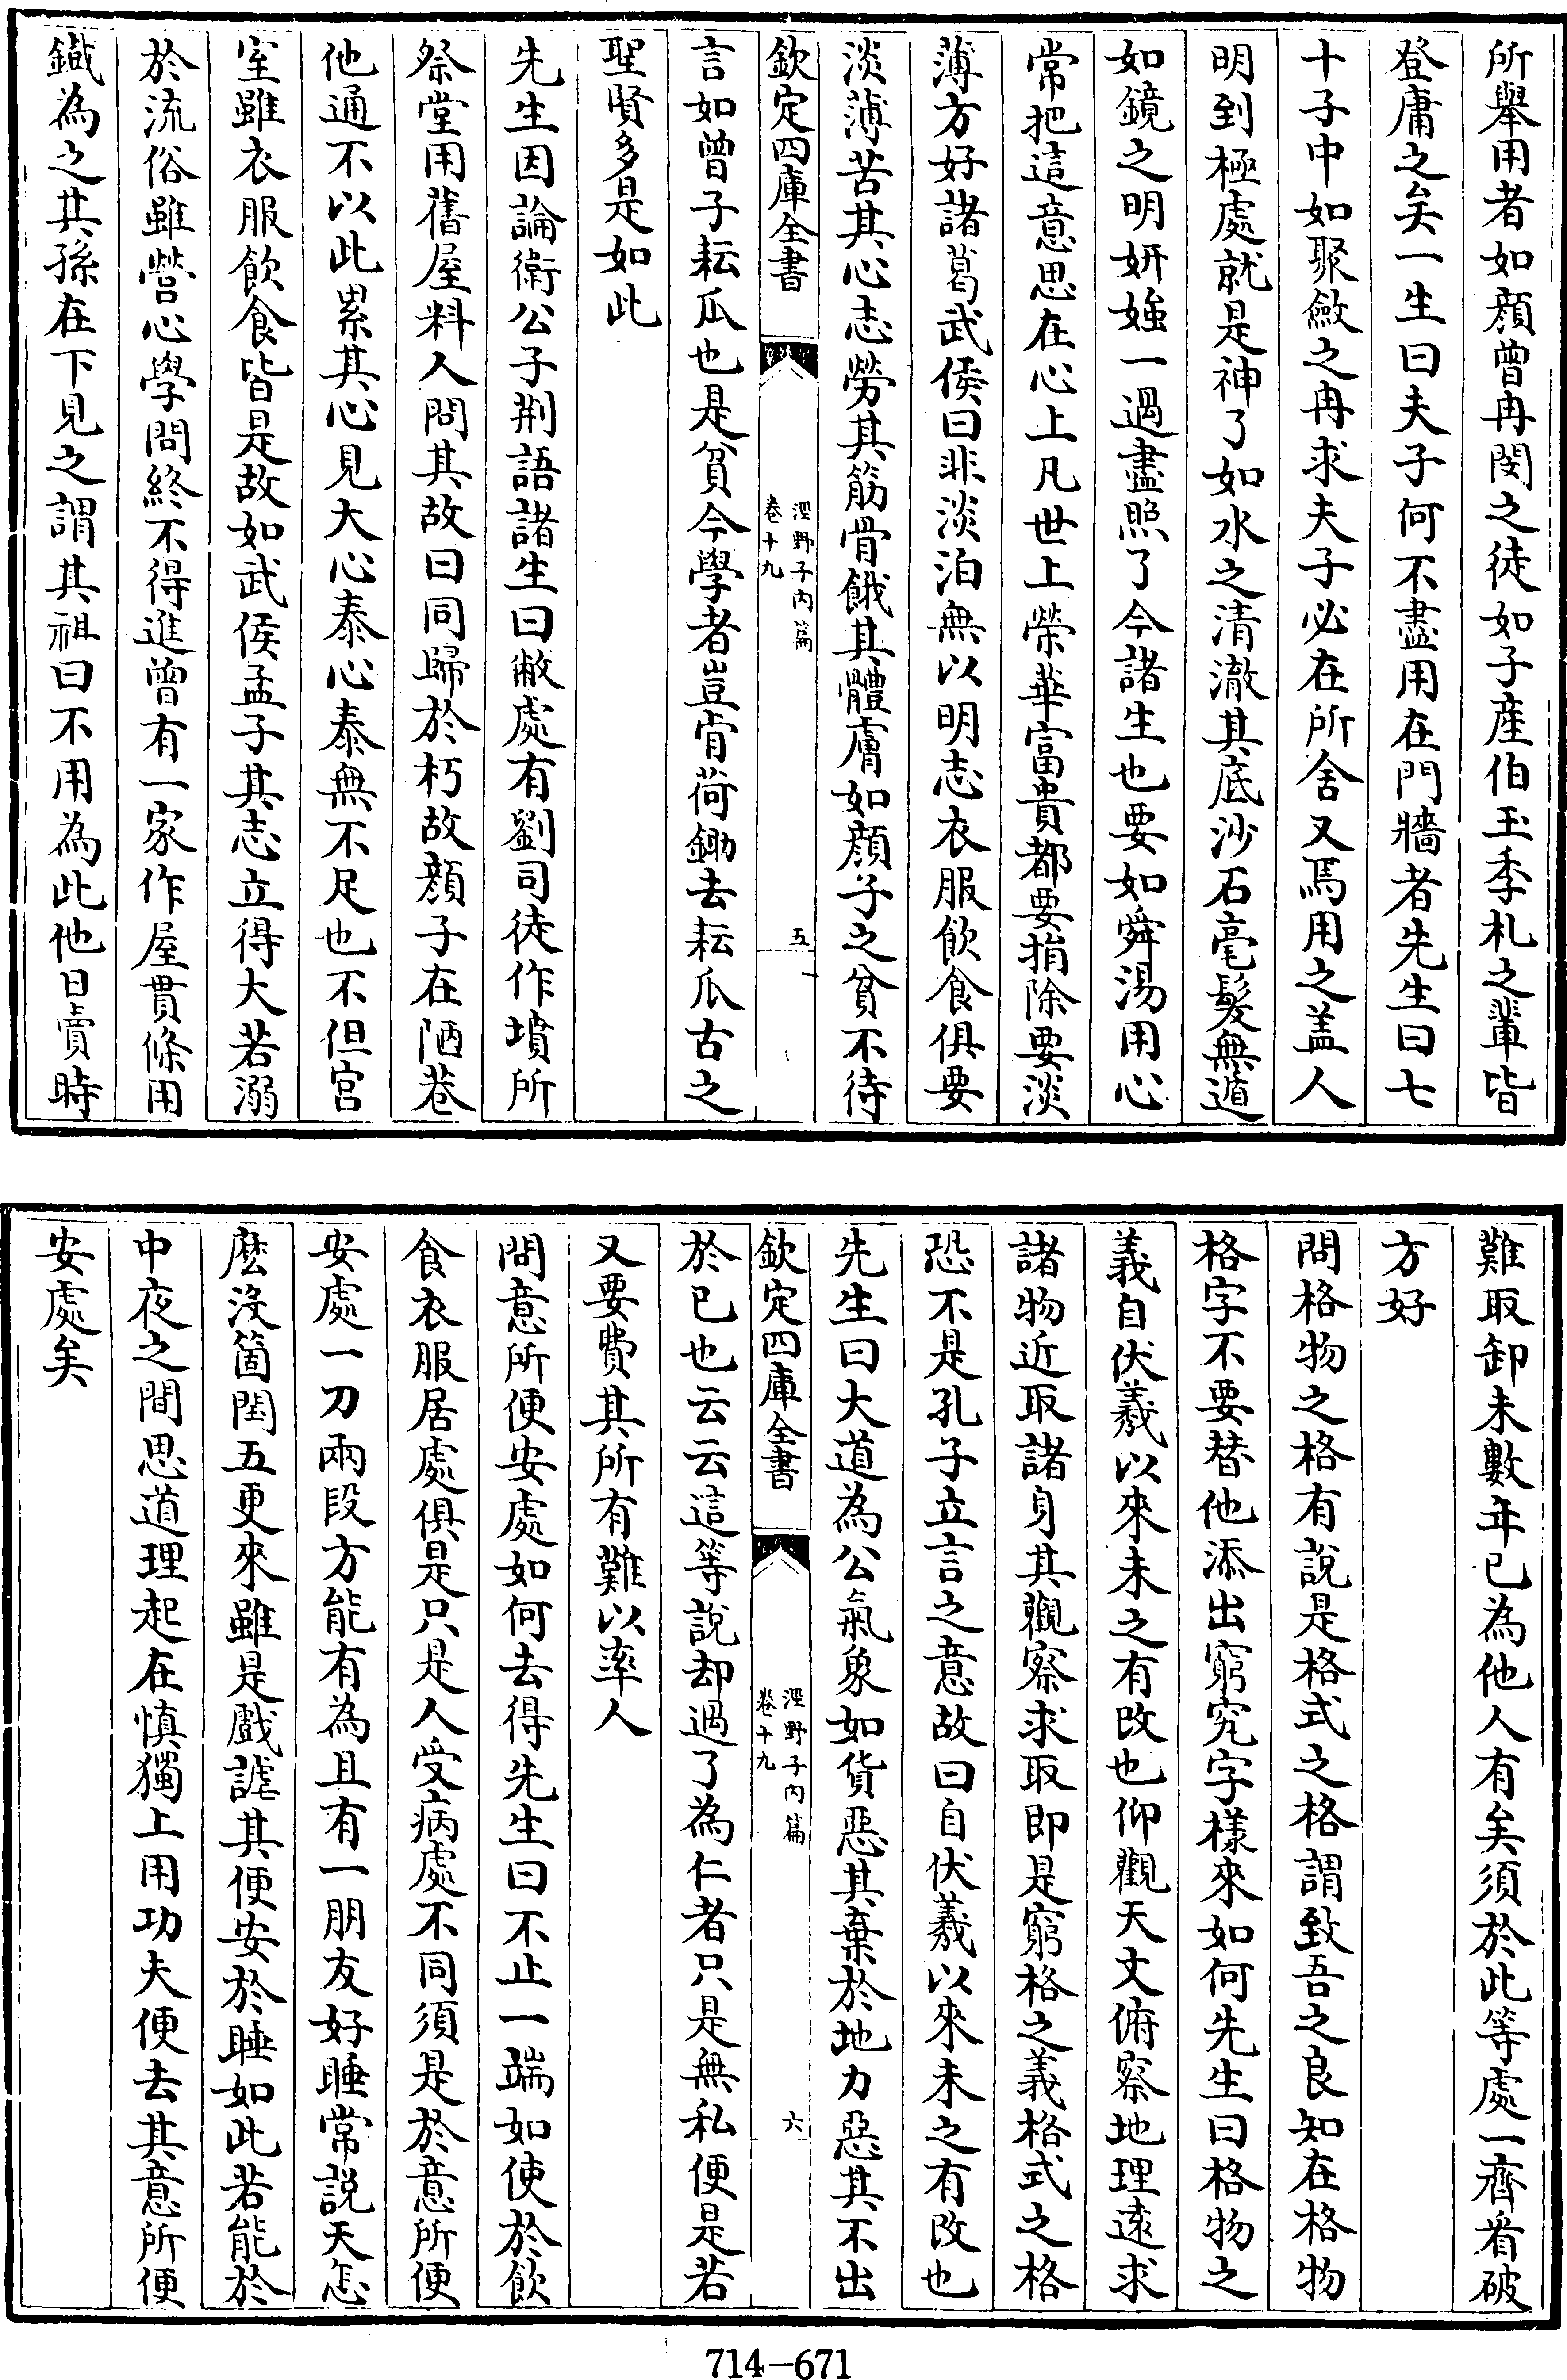 所舉用者如顔曾冉閔之徒如子産伯玉季札之輩皆
登庸之矣一生曰夫子何不盡用在門牆者先生曰七
十子中如聚斂之冉求夫子必在所舍又焉用之盖人
明到極處就是神了如水之清澈其底沙石毫髮無遁
如鏡之明妍媸一過盡照了今諸生也要如舜湯用心
常把這意思在心上凡世上榮華富貴都要捐除要淡
薄方好諸葛武侯曰非淡泊無以明志衣服飲食俱要
淡薄苦其心志勞其筋骨餓其體膚如顔子之貧不待
欽定四庫全書
涇野子内篇
卷十九
五
言如曾子耘瓜也是貧今學者豈肯荷鋤去耘瓜古之
聖賢多是如此
先生因論衛公子荆語諸生曰敝處有劉司徒作墳所
祭堂用舊屋料人問其故曰同歸於朽故顔子在陋巷
他通不以此累其心見大心泰心泰無不足也不但宫
室雖衣服飲食皆是故如武侯孟子其志立得大若溺
於流俗雖營心學問終不得進曾有一家作屋貫條用
鐡為之其孫在下見之謂其祖曰不用為此他日賣時
難取卸未數年已為他人有矣須於此等處一齊看破
方好
問格物之格有說是格式之格謂致吾之良知在格物
格字不要替他添出窮究字様來如何先生曰格物之
義自伏羲以來未之有改也仰觀天文俯察地理遠求
諸物近取諸身其觀察求取即是窮格之義格式之格
恐不是孔子立言之意故曰自伏羲以來未之有改也
先生曰大道為公氣象如貨惡其棄於地力惡其不出
欽定四庫全書
涇野子内篇
卷十九
六
於已也云云這等說却過了為仁者只是無私便是若
又要費其所有難以率人
問意所便安處如何去得先生曰不止一端如使於飲
食衣服居處俱是只是人受病處不同須是於意所便
安處一刀兩段方能有為且有一朋友好睡常説天怎
麽没箇閏五更來雖是戲謔其便安於睡如此若能於
中夜之間思道理起在慎獨上用功夫便去其意所便
安處矣
714-671